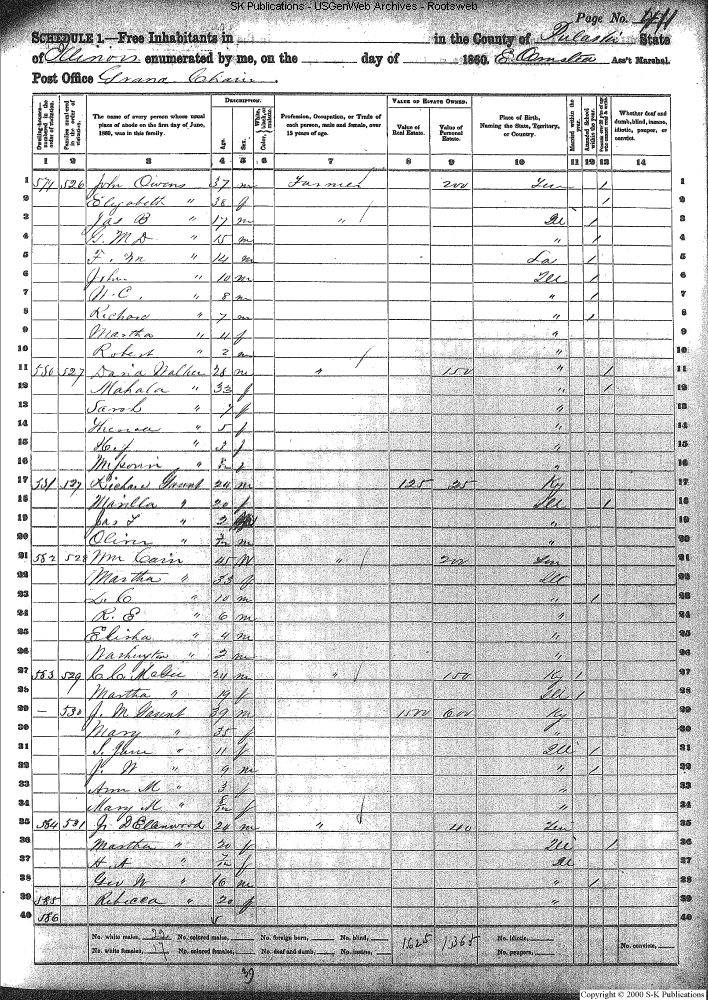 SK Publications - USGenWeb Archives - Rootsweb
Page No. 
SCHEDULE 1.—Free Inhabitants in in the County of Pulaski State
of Illinois enumerated by me, on the day of 1860. Ass't Marshal.
Post Office Grand Chain
DESCRIPTION. VALUE OF ESTATE OWNED.
Dwelling-houses—numbered in the order of visitation. Families numbered in the order of visitation. The name of every person whose usual place of abode on the first day of June, 1860, was in this family. Age. Sex. Color, White, black, or mulatto. Profession, Occupation, or Trade of each person, male and female, over 15 years of age. Value of Real Estate. Value of Personal Estate. Place of Birth, Naming the State, Territory, or Country. Married within the year. Attended School within the year. Whether deaf and dumb, blind, insane, idiotic, pauper, or convict.
1 2 3 4 5 6 7 8 9 10 11 12 13 14
1 579 526 John Owens 37 m Farmer 200 Ten / 1
2 Elizabeth " 38 f / 2
3 Jas B " 17 m " / Ill / 3
4 G. M D " 15 m " / 4
5 " 14 m La / 5
6 John " 10 m Ill / 6
7 W. C. " 8 m " / 7
8 Richard " 7 m " / 8
9 Martha " 4 f " 9
10 Robert " 2 m " 10
11 580 527 Walker 28 m " / 150 " / 11
12 Mahala " 33 f " / 12
13 Sarah " 7 f " 13
14 " 5 f " 14
15 " 3 f " 15
16 Missouri " f " 16
17 581 527 Richard Gaunt 24 m 125 25 Ky 17
18 Marilla " 20 f Ill / 18
19 Jas " 2 " 19
20 Oliver " m " 20
21 582 528 Wm Cain 45 M " / 200 Ten 21
22 Martha " 33 f Ill 22
23 L. C " 10 m " / 23
24 R. E " 6 m " 24
25 Elisha " 4 m " 25
26 Washington " 2 m " 26
27 583 529 C. C. McGee 24 m " / 150 Ky 1 27
28 Martha " 19 f Ill 1 28
29 — 530 J. M Gaunt 39 m 1500 600 Ky 29
30 Mary " 35 f " 30
31 S. Jane " 11 f Ill / 31
32 J. W " 9 m " / 32
33 Ann M " 3 f " 33
34 Mary M " f " 34
35 584 531 Ellenwood 24 m " 40 Ten 35
36 Martha " 20 f Ill / 36
37 H. A " f Ill 37
38 Geo W " 16 m " / 38
39 585 Rebecca " 20 f " 39
40 586 40
No. white males, 22 No. colored males, No. foreign born, No. blind, 1625 1365 No. idiotic,
No. white females, 17 No. colored females, No. deaf and dumb, No. insane, No. paupers, No. convicts,
39
Copyright © 2000 S-K Publications